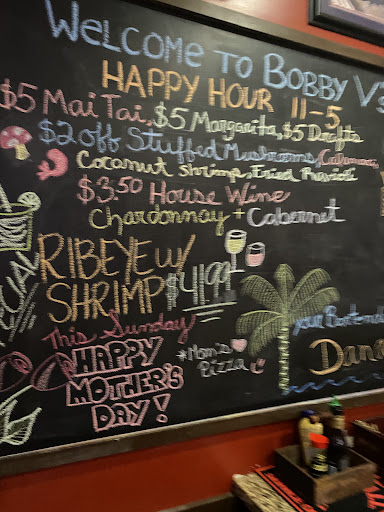 WELCOME TO BOBBY V'S
HAPPY HOUR 11-5
$5 Mai Tai, $5 Margarita, $5 Drafts
$2 off Stuffed Mushrooms, Calamari,
Coconut Shrimp, Fried Ravioli
$3.50 House Wine
Chardonnay + Cabernet
RIBEYE W/
SHRIMP $41.99
This Sunday
HAPPY
MOTHER'S
DAY!
*Mom's
Pizza
your Bartend
Dana